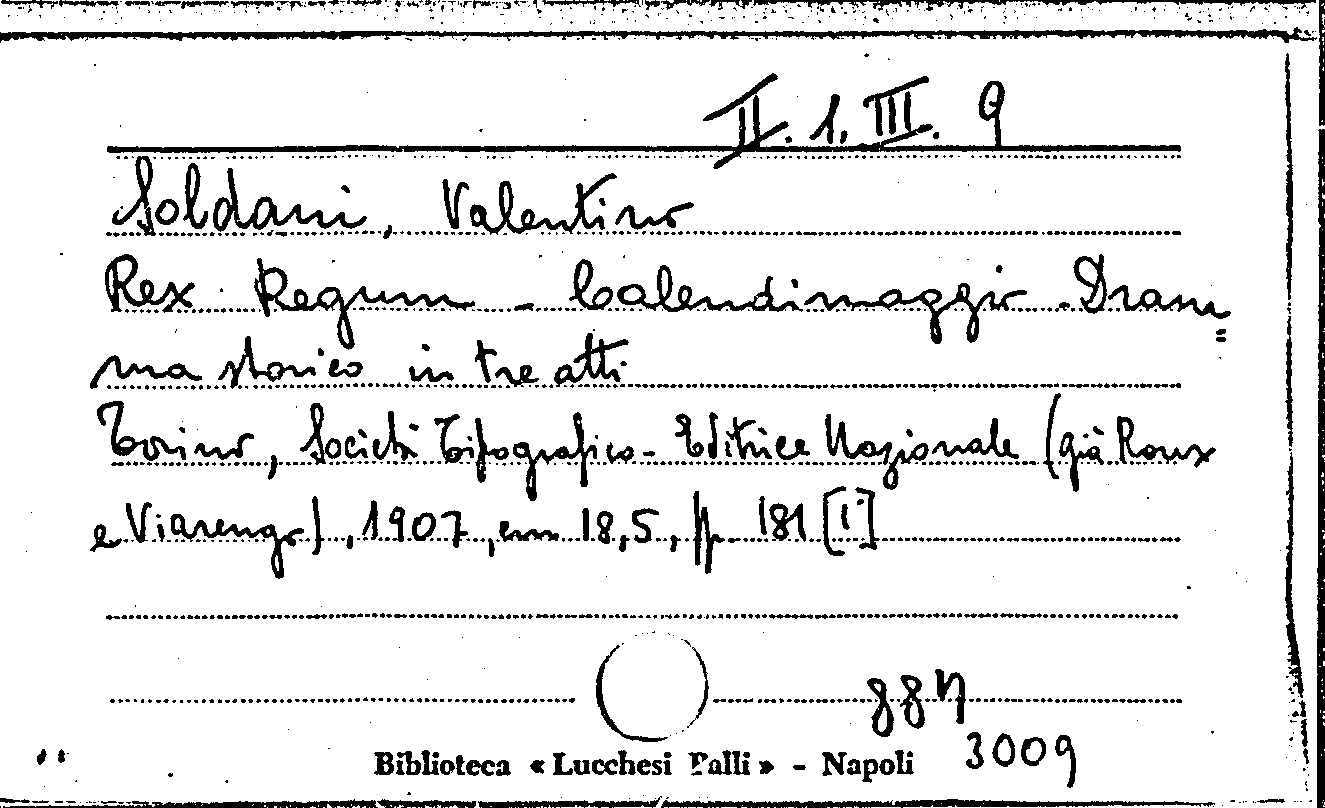 II. 1. III. 9
Soldani, Valentino
Rex Regum - Calendimaggio - Dram=
ma storico in tre atti
Torino, Società Tipografico - Editrice Nazionale (già Roux
e Viarengo), 1907, cm 18,5, pp. 181 [1]
3009
Biblioteca « Lucchesi Palli » - Napoli